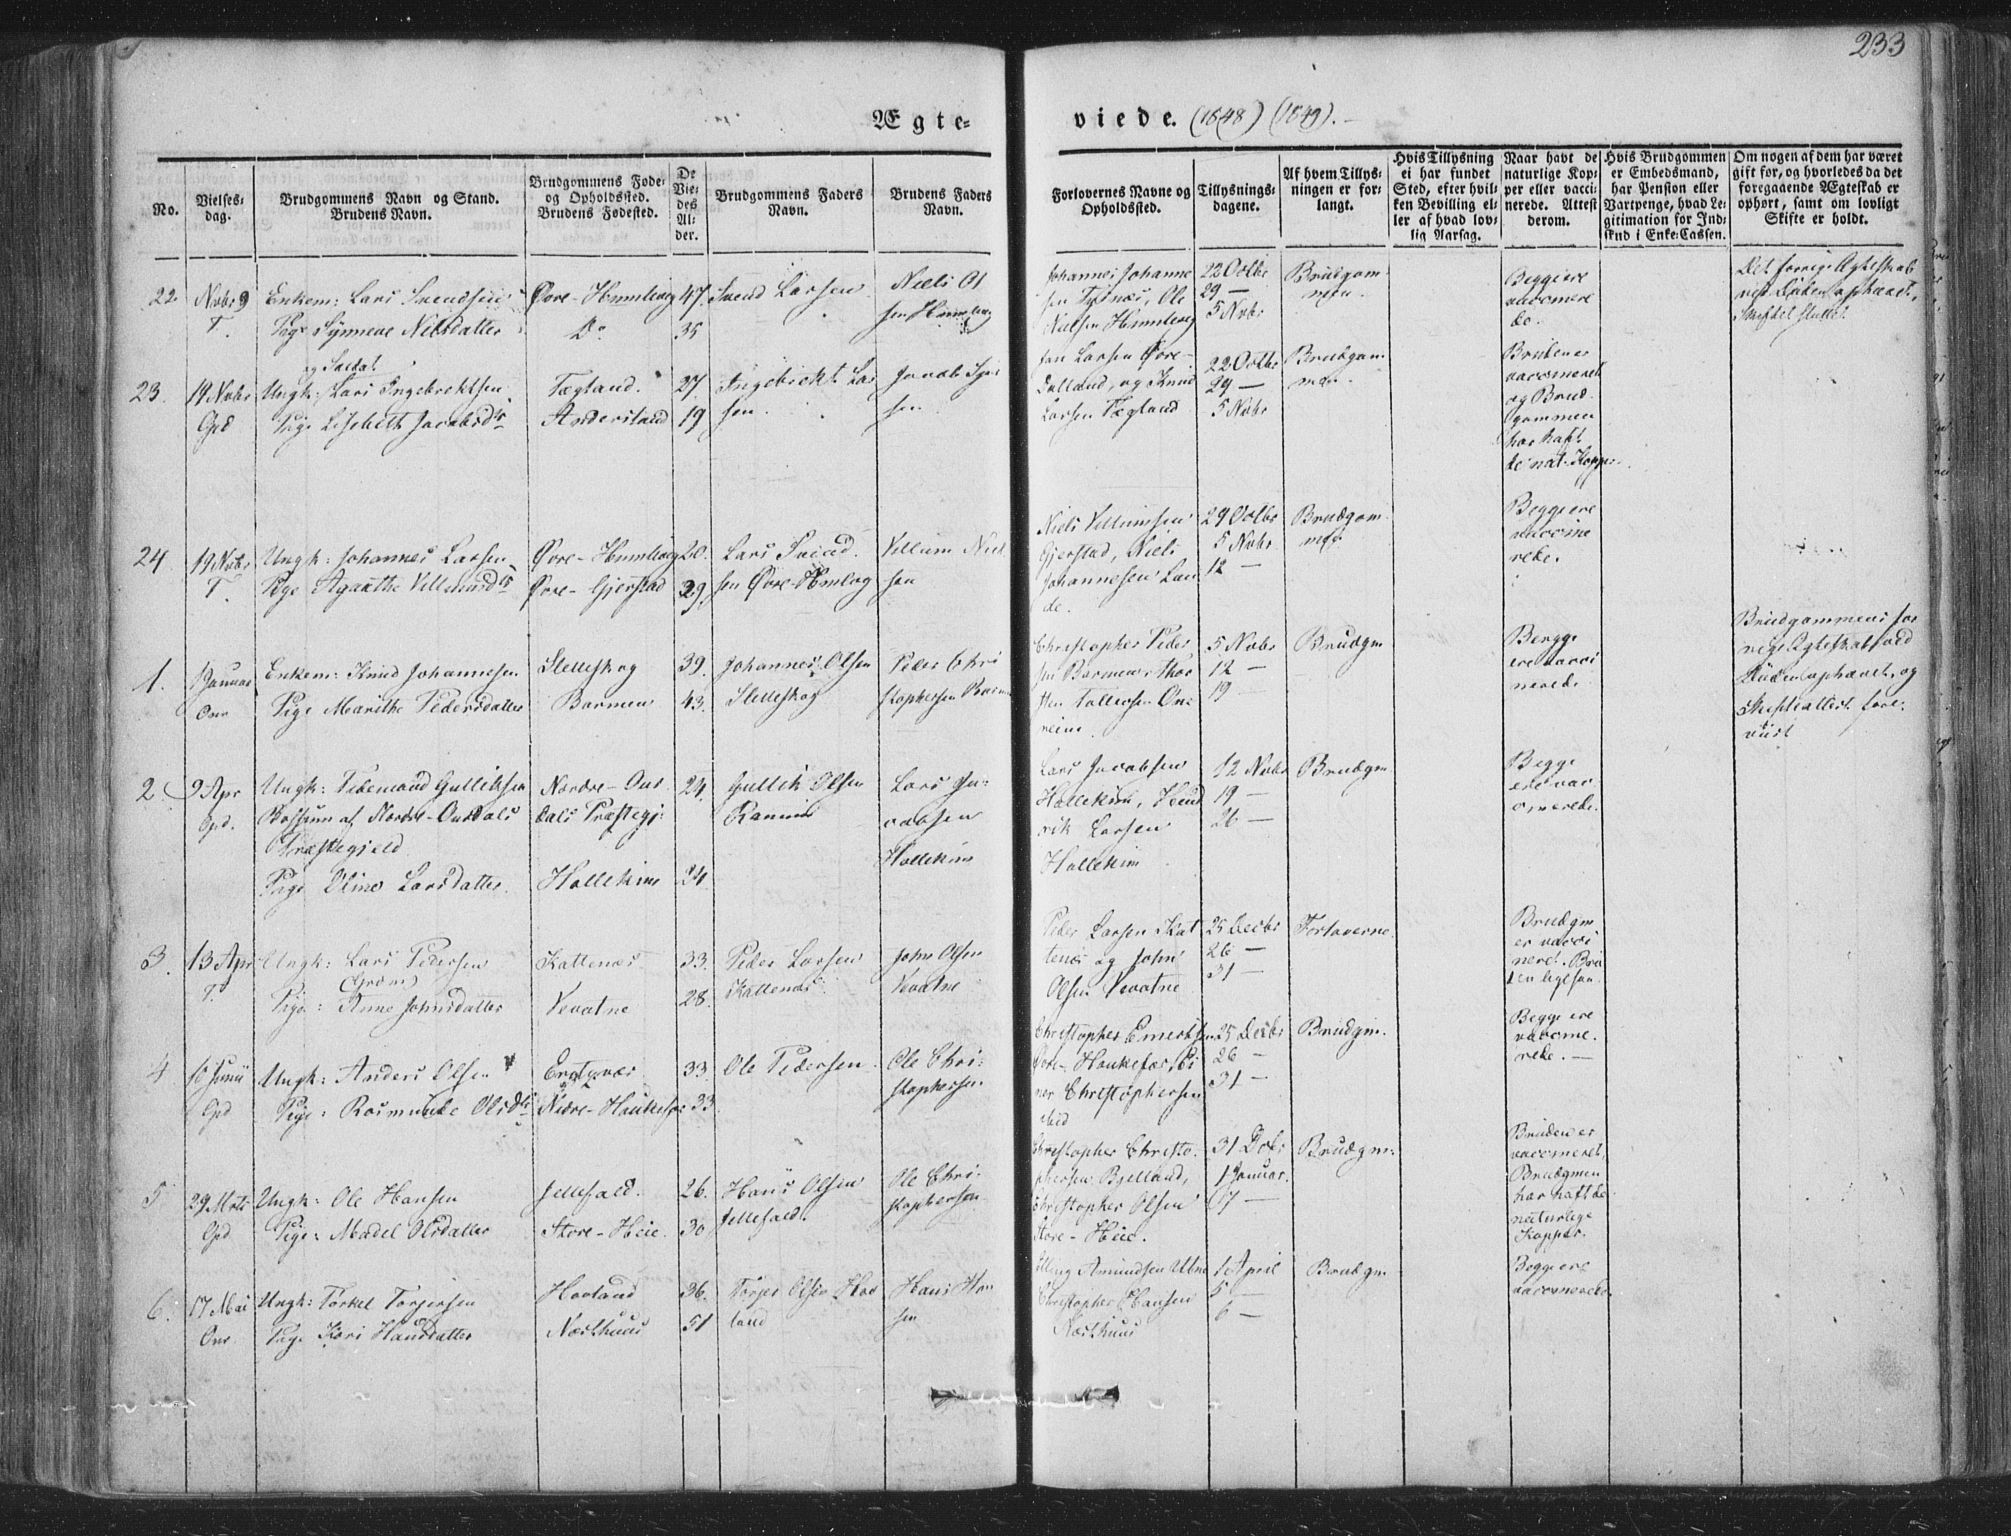 233
Ægte-
viede. (1848) (1849).
No.
Vielses-
dag.
Brudgommens Navn og Stand.
Brudens Navn.
Brudgommens Føde-
og Opholdssted.
Brudens Fødested.
De
Vie-
des
Al-
der.
Brudgommens Faders
Navn.
Brudens Faders
Navn.
Forlovernes Navne og
Opholdssted.
Tillysnings-
dagene.
Af hvem Tillys-
ningen er for-
langt.
Hvis Tillysning
ei har fundet
Sted, efter hvil-
ken Bevilling el-
ler af hvad lov-
lig Aarsag.
Naar havt de
naturlige Kop-
per eller vacci-
nerede. Attest
derom.
Hvis Brudgommen
er Embedsmand,
har Pension eller
Vartpenge, hvad Le-
gitimation for Ind-
skud i Enke-Cassen.
Om nogen af dem har været
gift før, og hvorledes da det
foregaaende Ægteskab er
ophørt, samt om lovligt
Skifte er holdt.
22. Novbr 9
T.
Enkem: Lars Svendsen
Pige Synneve Nilsdatter
Øvre-Hemmlevig
Do
47.
35
Svend Larsen
Niels Ol
sen
Johannes Johanne
sen Tysnæs, Ole
Nielsen Hemmlevig
22 Octbr
29 —
5 Nvbr
Brudgom
men.
Begge ere
vaccinere
de.
23. 19 Novbr
Gpd
og Soldat
Ungk: Lars Ingebrektsen
Pige Lisebeth Jacobsdtr
Tægland.
Anderstand
27.
19
Ingebrekt Lar
sen.
Jacob
sen
Larsen Øvre-
Dalland, og Knud
Larsen Tægland
22 Octbr
29 —
5 Nvbr
Brudgom
men.
Bruden er
vaccineret
og Brud
gommen
har haft
de nat. Kopper.
24. 19 Nvbr
T.
Ungk: Johannes Larsen
Pige Agaathe Villumsdtr
Øvre-Hemmlevig
Øvre-Gjerstad
20.
29.
Lars Svend
sen Øvre-
Villum Niel
sen
Niels Villumsen
Gjerstad, Niels
Johannesen Lan
de.
29 Octbr
5 Nvbr
12 —
Brudgom
men
Begge ere
vaccine
rede.
1. 1 Januar
Enkem: Knud Johannesen
Pige Marithe Pedersdatter
Sletteskog
Barmen
39.
43.
Johannes Olsen
Sletteskog
Peder Chri
stophersen Barmen
Christopher Peder
sen Barmen, Thor
sten Tollevsen One
reim
5 Nvbr
12 —
19 —
Brudgm
Begge
ere vacci
nerede
Brudgommens for
rige Ægteskab ved
Døden ophævet, og
Skifteattest fore-
viist
2. 9 Apr
Gpd.
Ungk: Tidemand Gulliksen
af Nordre-Ourdals
Præstegjeld
Pige Oline Larsdatter
Nordre-Our
dals Præstegj:
Hallekim
24.
24
Gullik Olsen
Lars Ja-
cobsen
Hallekim
Lars Jacobsen
Hallekim, Hend
rik Larsen
Hallekim
12 Nvbr
19 —
26 —
Brudgm
Begge
ere vac
cinerede.
3. 13 Apr
T.
Ungk: Lars Pedersen
Pige: Anne Johnsdatter
Kattenæs
Vevatne
33.
28.
Peder Larsen
Kattenæs
John Olsen
Vevatne
Peder Larsen Kat
tenæs og John
Olsen Vevatne
25 Decbr
26 —
31 —
Forloverne
Brudgm
er vacci
neret. Bru
den ligesaa.
4 10 Junii
Gpd
Ungk: Anders Olsen
Pige: Rosmunde Olsdtr
Nedre-Haukefær
33.
33
Ole Pedersen
Ole Chri-
stophersen
Christopher Ernestsen
Øvre-Haukefær,
Christophersen
25 Decbr
26 —
31 —
Brudgm.
Begge ere
vaccine-
rede. —
5 29 Mrts
Gpd
Ungk: Ole Hansen
Pige: Madel Olsdatter
Jellesæld.
Store-Heie.
26.
30
Hans Olsen
Jellesæld.
Ole Chri-
stophersen
Christopher Christo-
phersen Bjelland,
Christopher Olsen
Store-Heie.
31 Decbr
1 Januar.
17 —
Brudgm:
Bruden er
vaccineret.
Brudgmen
har haft de
naturlige
Kopper.
6. 17 Mai
Ungk: Torkel Torjersen
Pige Kari Hansdatter
Hovland
Næsthuus
36.
51
Torjer Olsen Hov
land
Hans Han
sen
Elling Amundsen
Christopher Hansen
Næsthuus
1 April
5 —
6 —
Brudgm
Begge ere
vaccinerede
Det forrige Ægteskab
ved Døden ophævet,
Skiftet sluttet.